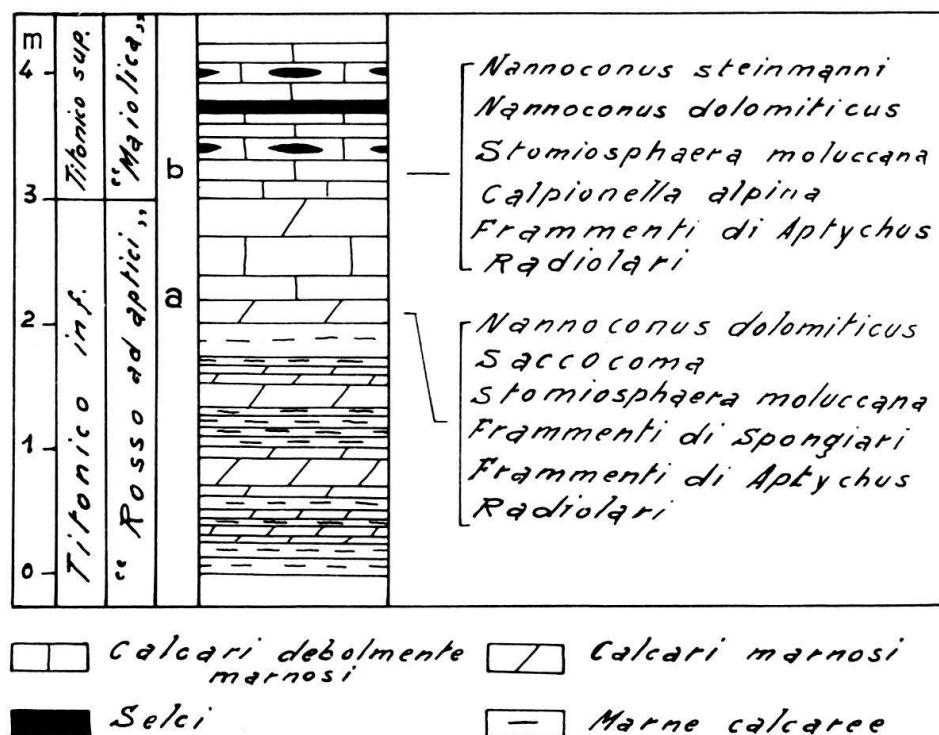 m
4
3
2
1
0
Titonico sup.
Titonico inf.
“Maiolica„
“Rosso ad aptici„
b
a
Nannoconus steinmanni
Nannoconus dolomiticus
Stomiosphaera moluccana
Calpionella alpina
Frammenti di Aptychus
Radiolari
Nannoconus dolomiticus
Saccocoma
Stomiosphaera moluccana
Frammenti di Spongiari
Frammenti di Aptychus
Radiolari
Calcari debolmente
marnosi
Calcari marnosi
Selci
Marne calcaree